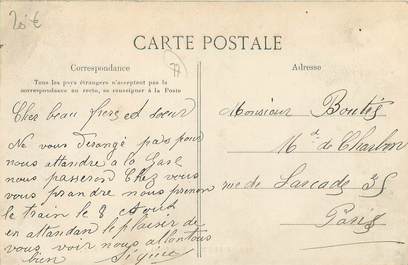 20€
CARTE POSTALE
Correspondance
77
Adresse
Tous les pays étrangers n'acceptent pas la
correspondance au recto, se renseigner à la Poste
Cher beau frere et soeur
Ne vous dérangé pas pour
nous attendre a la Gare
nous passeron Chez vous
vous prandre nous prenon
le train le 8 Aout
en attandan le plaisir de
vous voir nous
bien
Monsieur Boutés
Md de Charbon
rue de Lascade 35
Paris